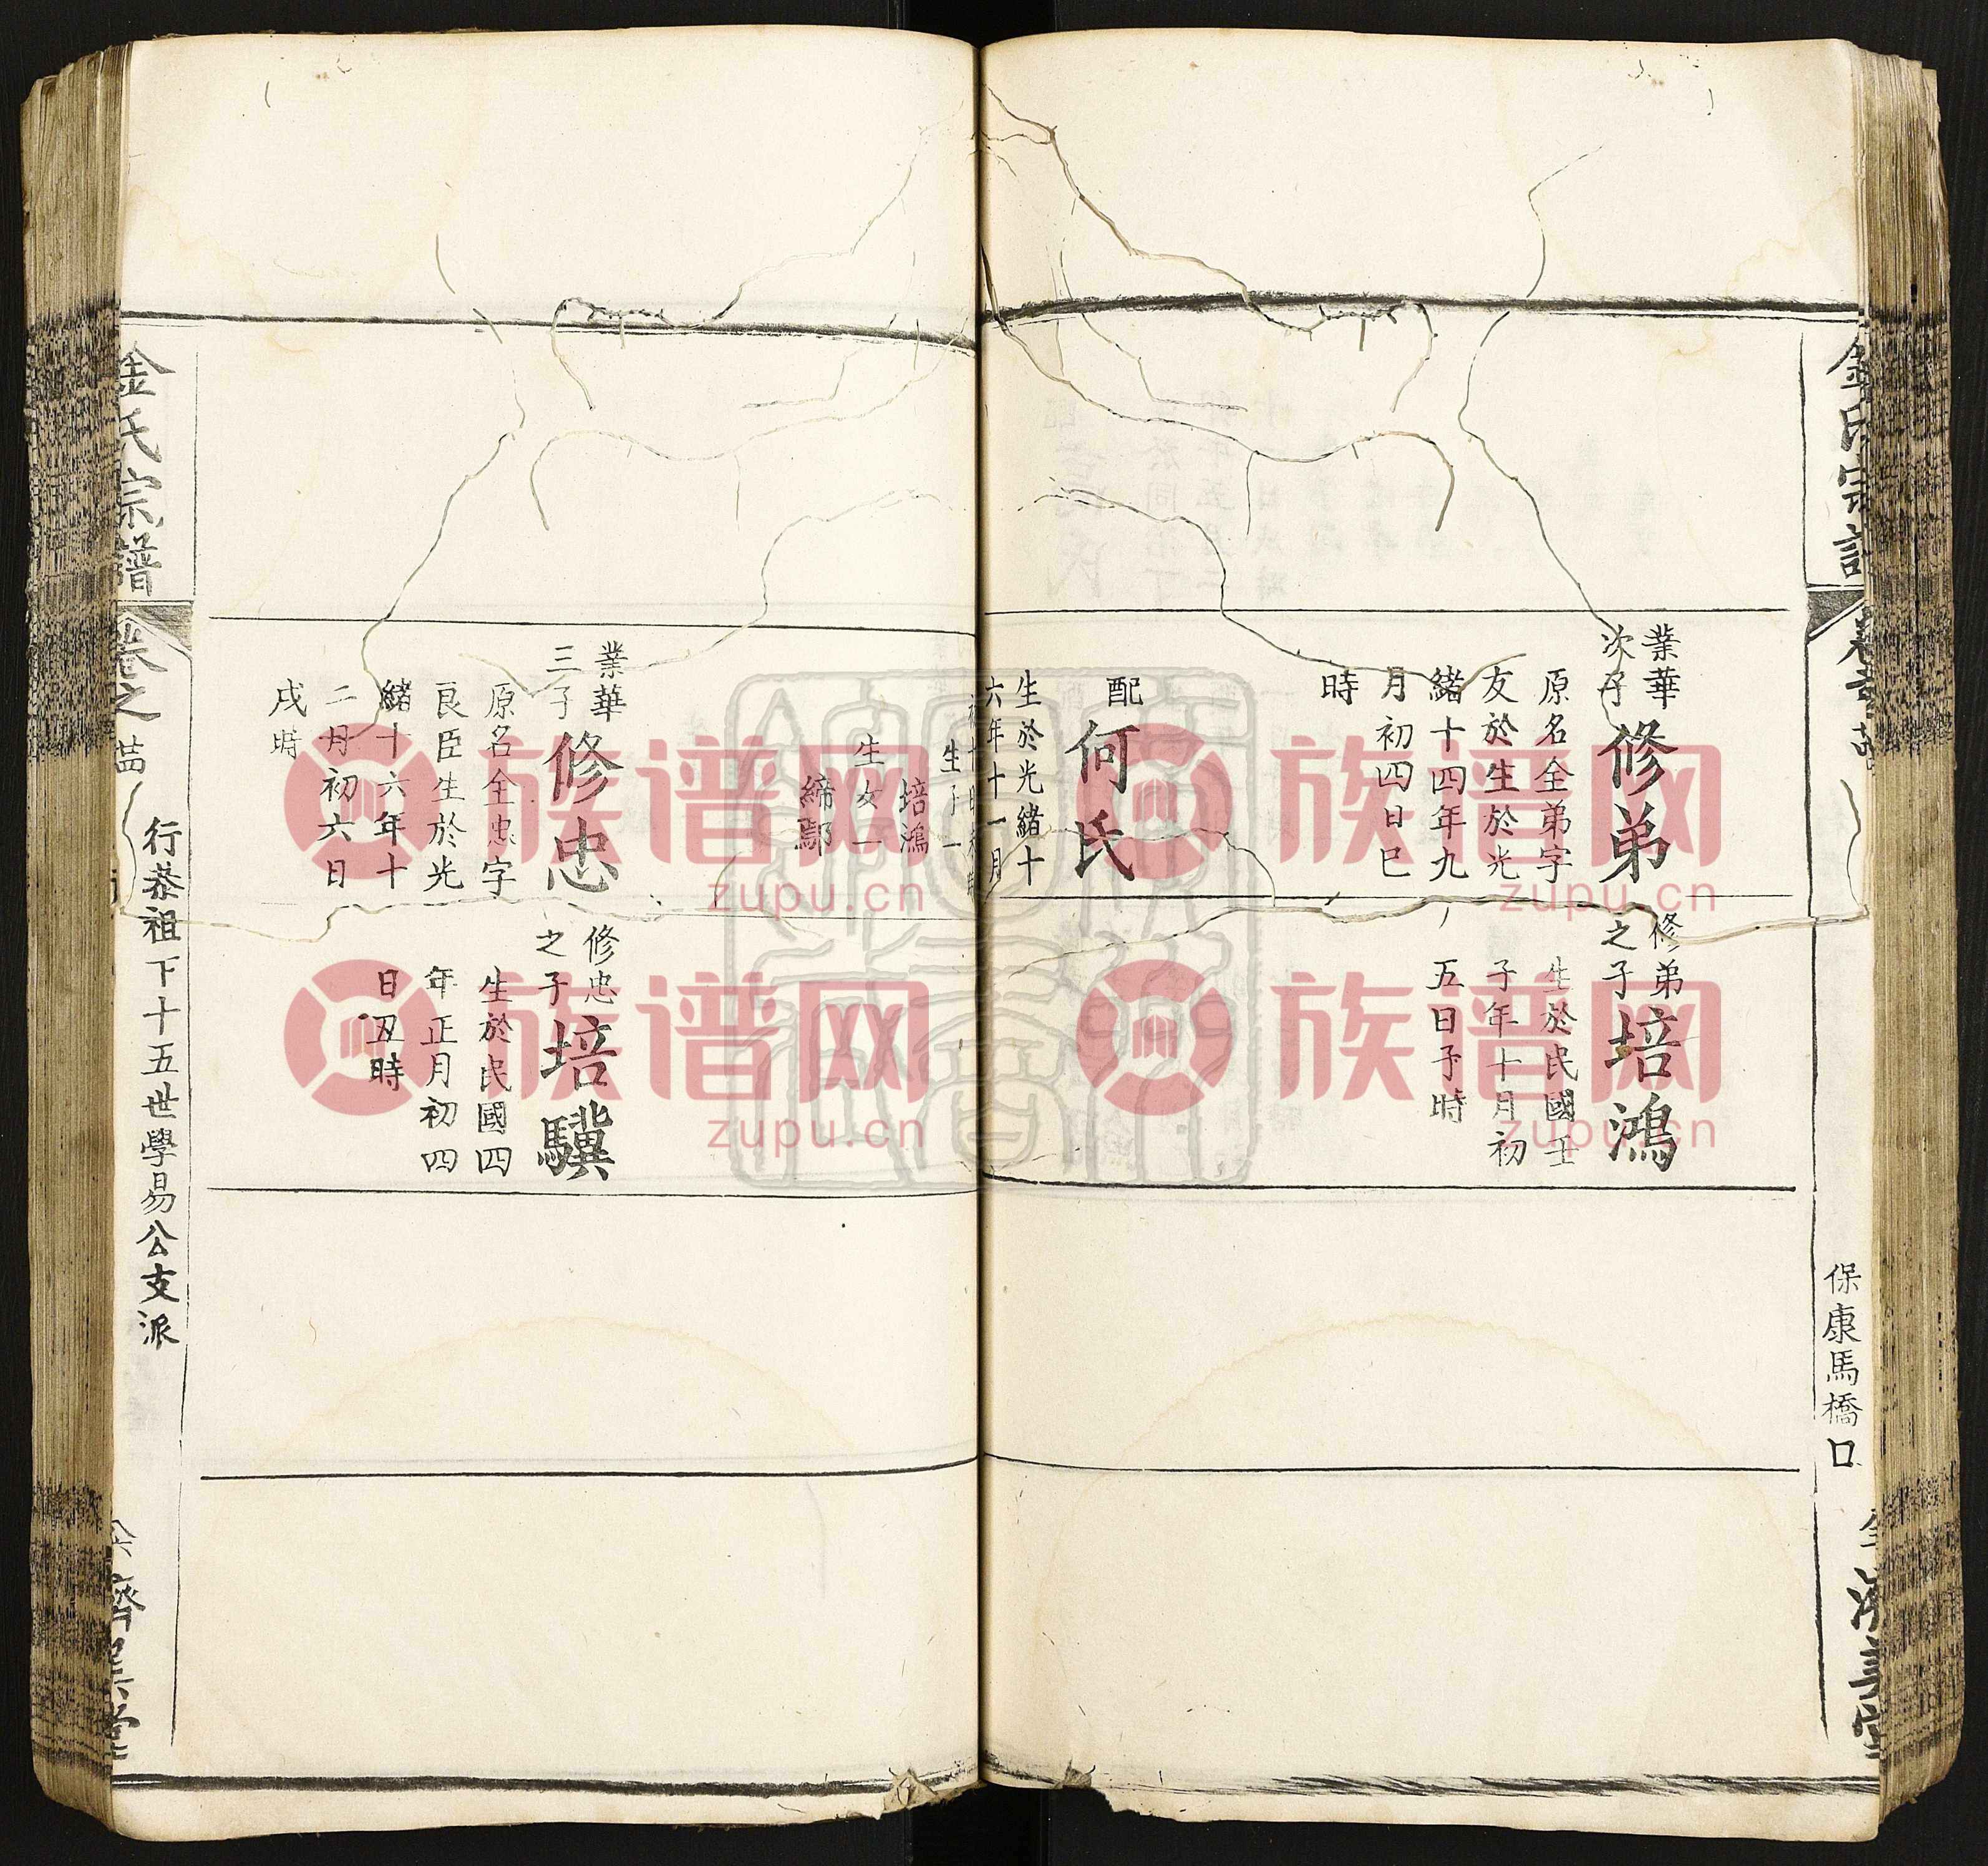 保康馬橋口
業華
次子
修弟
原名全弟字
友於生於光
緒十四年九
月初四日巳
時
配
何氏
生於光緒十
六年十一月
生子一
培鴻
生女一
締鄢
修弟
之子
培鴻
生於民國壬
子年十月初
五日子時
業華
三子
修忠
原名全忠字
良臣生於光
緒十六年十
二月初六日
戌時
修忠
之子
培驥
生於民國四
年正月初四
日丑時
金氏宗譜
卷之
行恭祖下十五世學易公支派
族谱网
zupu.cn
族谱网
zupu.cn
族谱网
zupu.cn
族谱网
zupu.cn